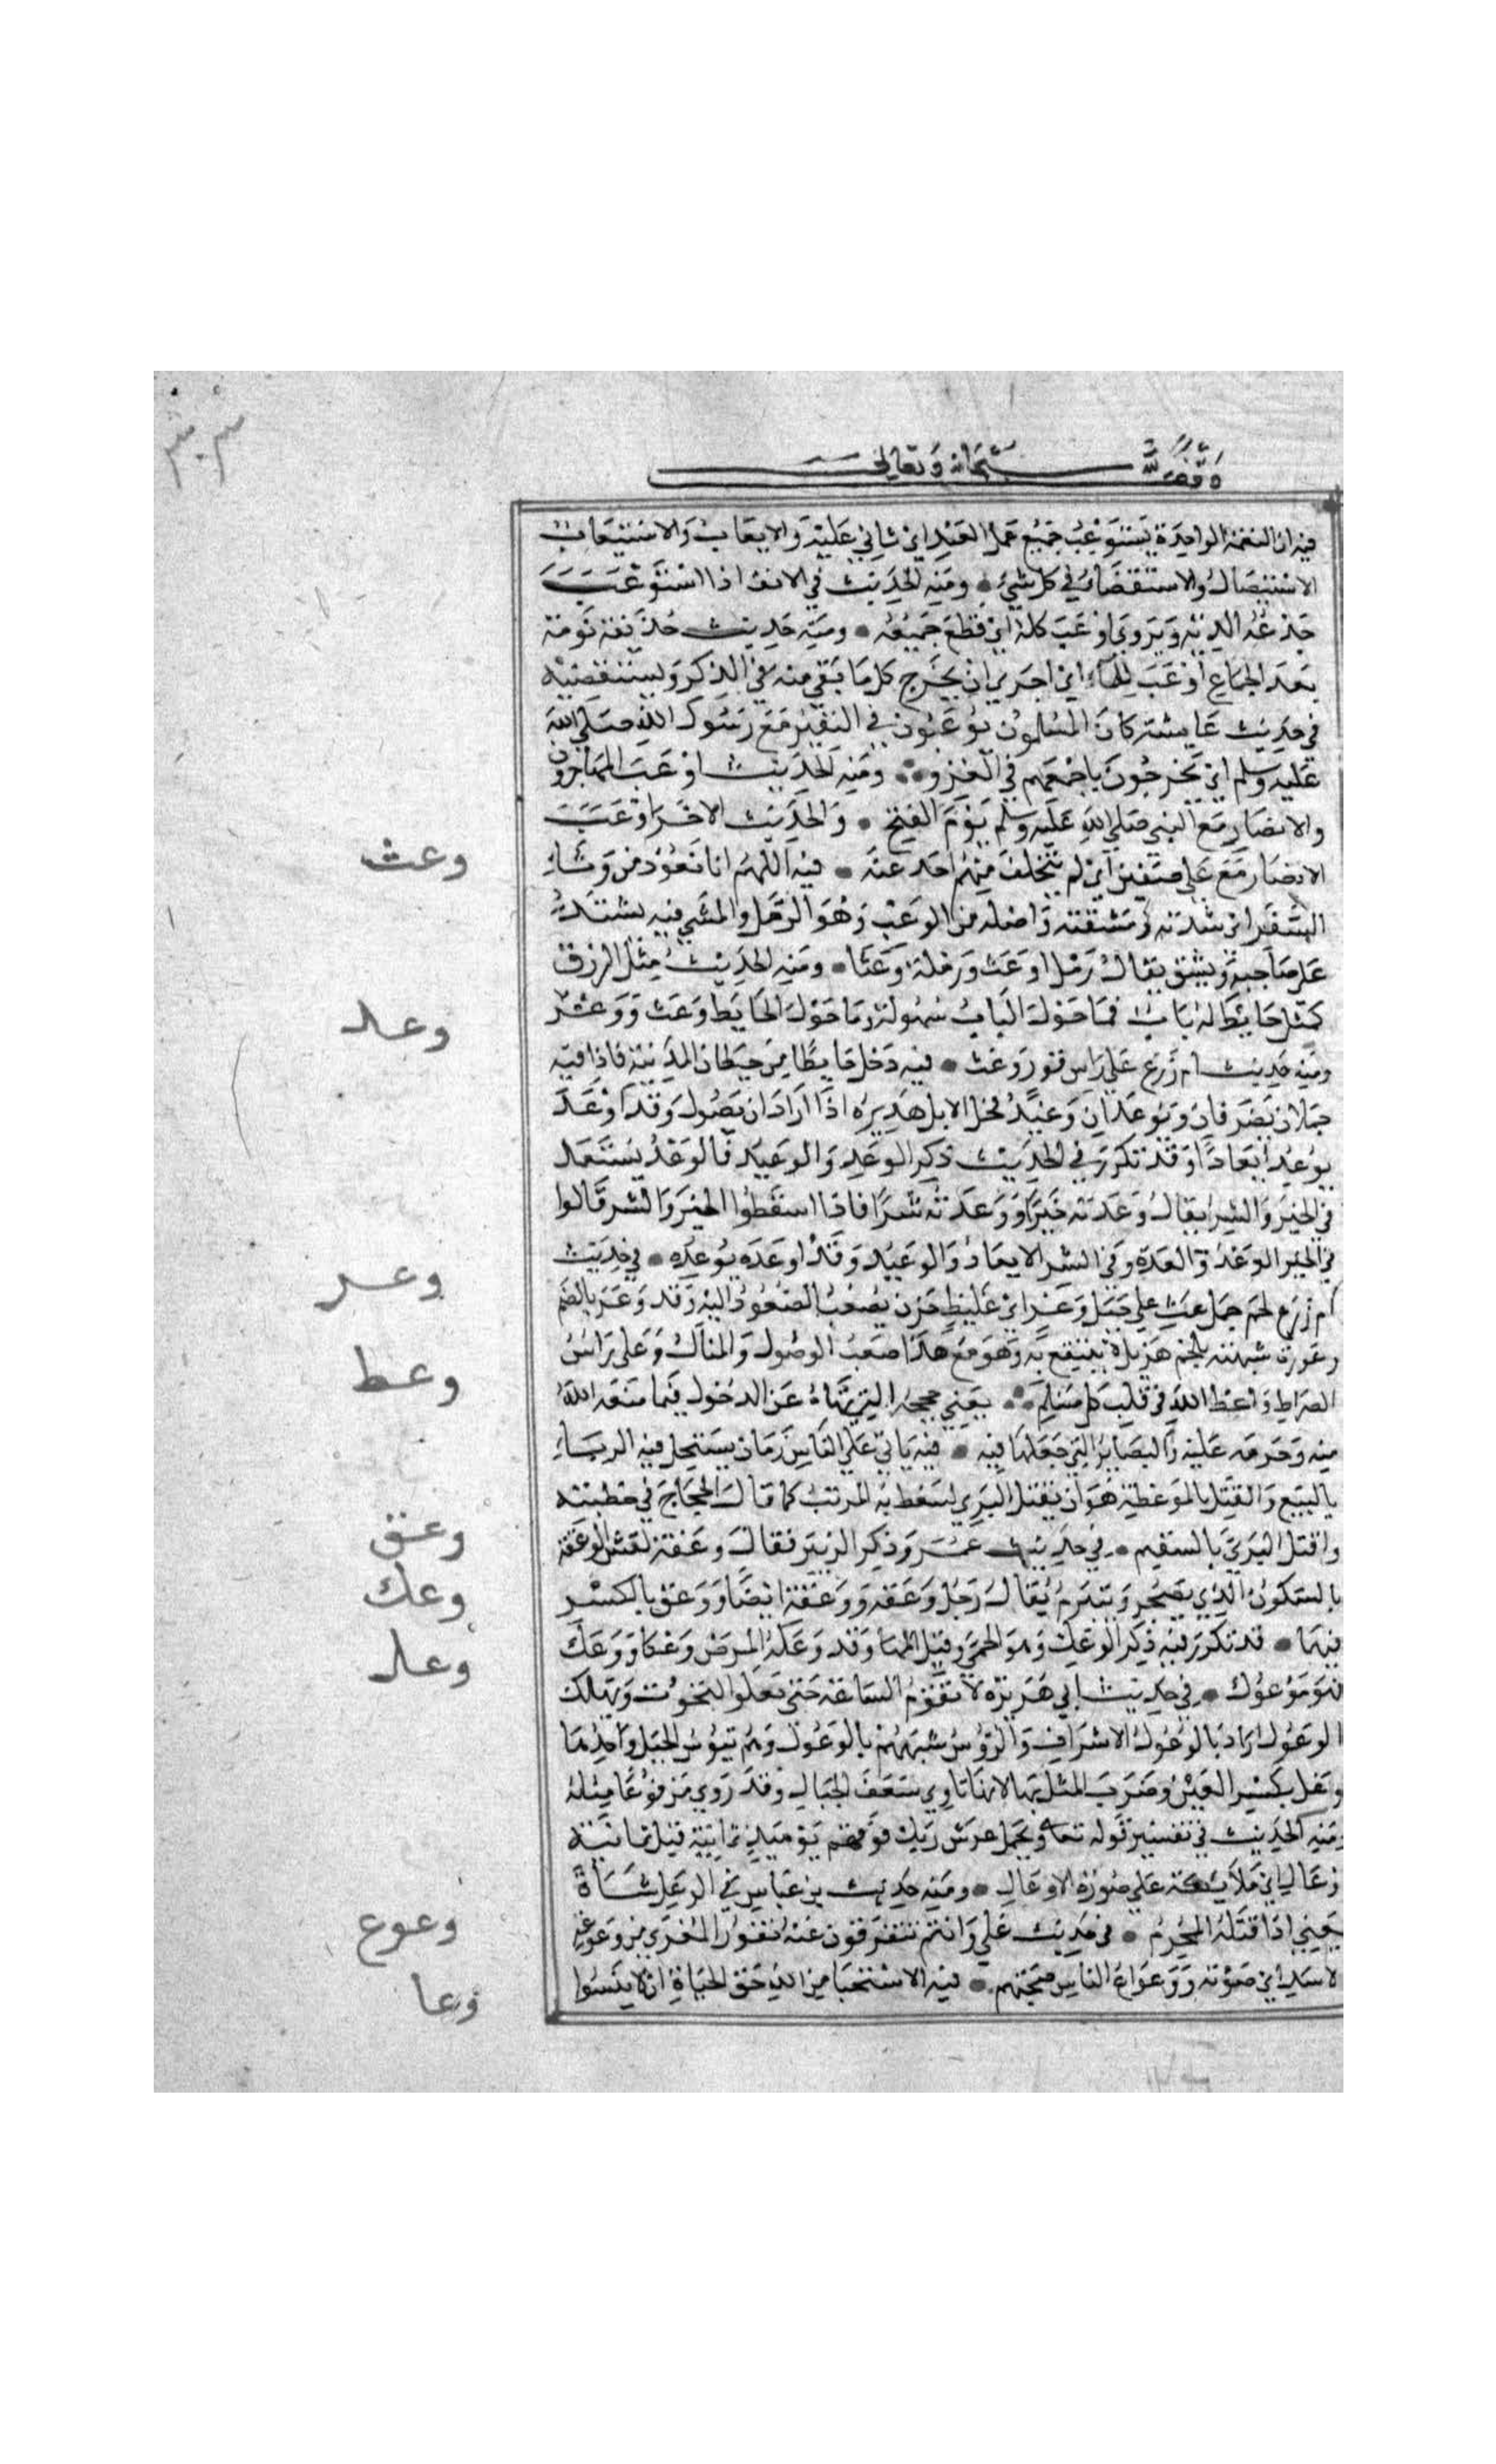 وقف لله سبحانه وتعالى
فيه ان النعمة الواحدة يستوعب جميع عمل العبد اي تاتي عليه والايعاب والاستيعاب
الاستيصال والاستقضاء في كل شيء • ومنه الحديث في الانف اذا استوعب
جذعه الدية ويروي اوعب كله اي قطع جميعه • ومنه حديث حذيفة نومة
بعد الجماع اوعب للماء اي احري ان يخرج كل ما بقي منه في الذكر ويستقصيه
في حديث عايشة كان المسلمون يوعبون في النفير مع رسول الله صلى الله
عليه وسلم اي يخرجون باجمعهم في الغزو • ومنه الحديث اوعب المهاجرون
والانصار مع النبي صلي الله عليه وسلم يوم الفتح • والحديث الاخر اوعب
الانصار مع علي صفين اي لم يتخلف منهم احد عنه • فيه اللهم انا نعوذ من وعثاء
السفر اي شدته ومشقته واصله من الوعث وهو الرمل والمشي فيه يشتد
على صاحبه ويشق يقال رمل اوعث ورملة وعثا • ومنه الحديث مثل الرزق
كمثل حايط له باب فما حول الباب سهولة وما حول الحايط وعث ووعر
ومنه حديث ام زرع علي راس قور وعث • فيه دخل حايطا من حيطان المدينة فاذا فيه
جملان يصرفان ويوعدان وعيد فحل الابل هديره اذا اراد ان يصول وقد اوعد
يوعد ايعادا وقد تكرر في الحديث ذكر الوعد والوعيد فالوعد يستعمل
في الخير والشر يقال وعدته خيرا ووعدته شرا فاذا اسقطوا الخير والشر قالوا
في الخير الوعد والعدة وفي الشر الايعاد والوعيد وقد اوعده يوعده • في حديث
ام زرع لحم جمل غث علي جبل وعر اي غليظ حزن يصعب الصعود اليه وقد وعر بالضم
وعورة شبهته بلحم هزيل لا ينتفع به وهو مع هذا صعب الوصول والمنال وعلي راس
الصراط واعظ الله في قلب كل مسلم • يعني حججه التي تنهاه عن الدخول فيما منعه الله
منه وحرمه عليه والبصاير التي جعلها فيه • فيه ياتي علي الناس زمان يستحل فيه الرباء
بالبيع والقتل بالموعظة هو ان يقتل البري ليتعظ به المرتب كما قال الحجاج في خطبته
واقتل البري بالسقيم • في حديث عمر وذكر الزبير فقال وعقة لقس الوعقة
بالسكون الذي يضجر ويتبرم يقال رجل وعقه ووعقة ايضا ووعق بالكسر
فيهما • قد تكرر فيه ذكر الوعك وهو الحمي وقيل المها وقد وعكه المرض وعكا ووعك
فهو موعوك • في حديث ابي هريرة لا تقوم الساعة حتى تعلوا التحوت وتهلك
الوعول اراد بالوعول الاشراف والرؤس شبههم بالوعول وهم تيوس الجبل واحدها
وعل بكسر العين وضرب المثل بها لانها تاوي شعف الجبال وقد روي مرفوعا مثله
ومنه الحديث في تفسير قوله تعا ويحمل عرش ربك فوقهم يوميذ ثمانية قيل ثمانية
اوعال اي ملايكة علي صورة الاوعال • ومنه حديث بن عباس في الوعل شاة
يعني اذا قتله المحرم • في حديث علي وانتم تنفرون عنه نفور المعزي من وعوعة
الاسد اي صوته ووعواع الناس ضجتهم • فيه الاستحيا من الله حق الحياة ان لا ينسوا
وعث
وعد
وعر
وعظ
وعق
وعك
وعل
وعوع
وعا
٣٠٣